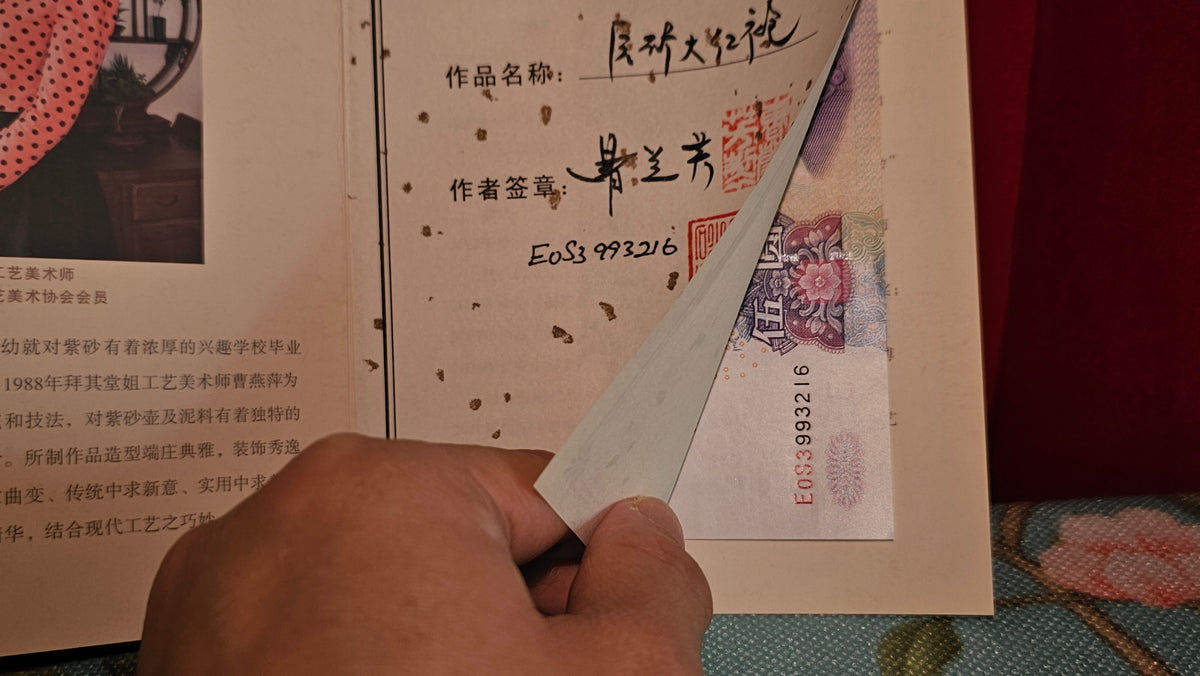 工艺美术师
艺美术协会会员
幼就对紫砂有着浓厚的兴趣学校毕业
1988年拜其堂姐工艺美术师曹燕萍为
和技法，对紫砂壶及泥料有着独特的
。所制作品造型端庄典雅，装饰秀逸
曲变、传统中求新意、实用中求
华，结合现代工艺之巧妙
作品名称：
作者签章：
E0S3993216
伍圆
E0S3993216